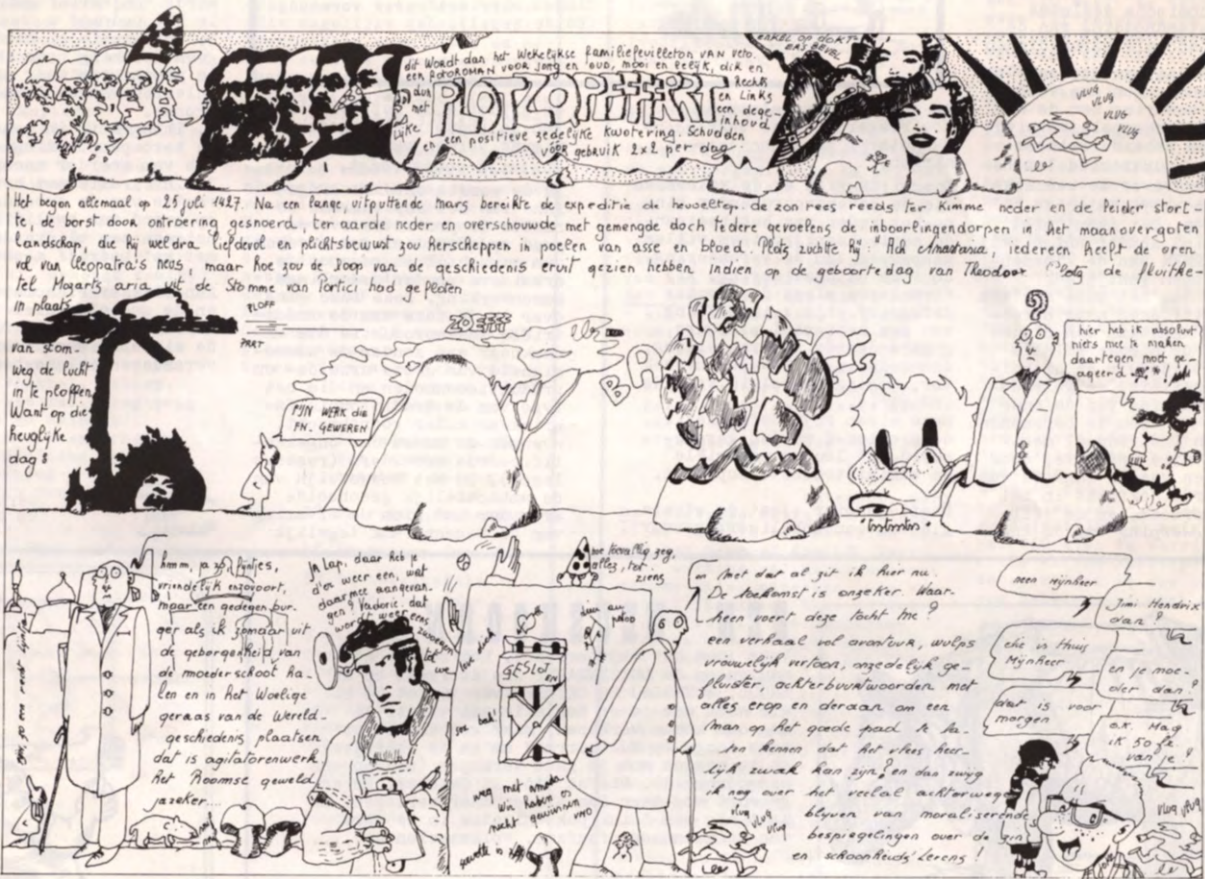 dit wordt dan het wekelijkse familiefeuilleton van veto.
een fotoroman voor jong en oud, mooi en lelijk, dik en
dun
rechts
en links
met
een dege-
lijke
inhoud
PLOTZOPEFFERT
en een positieve zedelijke kwotering. Schudden
vóór gebruik 2x2 per dag.
ENKEL OP DOKT
ERS BEVEL
VLUG
VLUG
VLUG
VLUG
Het begon allemaal op 25 juli 1427. Na een lange, uitputtende mars bereikte de expeditie de heuveltop. de zon rees reeds ter kimme neder en de leider stort-
te, de borst door ontroering gesnoerd, ter aarde neder en overschouwde met gemengde doch tedere gevoelens de inboorlingendorpen in het maanovergoten
landschap, die hij weldra liefdevol en plichtsbewust zou herscheppen in poelen van asse en bloed. Plots zuchtte hij: "Ach Anastasia, iedereen heeft de oren
vol van Cleopatra's neus, maar hoe zou de loop van de geschiedenis eruit gezien hebben indien op de geboortedag van Theodoor Plotz de fluitke-
tel Mozarts aria uit de Stomme van Portici had gefloten
in plaats
van stom-
weg de lucht
in te ploffen.
Want op die
heuglijke
dag:
PLOFF
PRRT
ZOEFFF
MIJN WERK die
FN-GEWEREN
BA
TS
hier heb ik absoluut
niets mee te maken
daartegen moet ge-
ageerd
hmm, ja zo, fijntjes,
vriendelijk enzovoort,
maar een gedegen bur-
ger als ik zomaar uit
de geborgenheid van
de moederschoot ha-
len en in het woelige
geraas van de wereld-
geschiedenis plaatsen
dat is agitatorenwerk
het Roomse geweld
jazeker...
Ja lap, daar heb je
d'er weer een, wat
daarmee aangevan-
gen? Vaderie. dat
wordt weer eens
zwoegen
GESLOT
EN
love
see
weg met
Wir haben es
nicht gewusst
toevallig zeg,
alles, tot
ziens
Met dat al zit ik hier nu.
De toekomst is onzeker. Waar-
heen voert deze tocht me?
een verhaal vol avontuur, wulps
vrouwelijk vertoon, onzedelijk ge-
fluister, achterbuurtwoorden met
alles erop en deraan om een
man op het goede pad te la-
ten kennen dat het vlees heer-
lijk zwak kan zijn? en dan zwijg
ik nog over het veelal achterwege
blijven van moraliserende
bespiegelingen over de zin
en schoonheid des levens!
vlug
vlug
vlug
neen mijnheer
Jimi Hendrix
dan?
ehe in Huis
Mijnheer
en je moe-
der dan?
dat is voor
morgen
o.k. Mag
ik 50 fr.
van je?
vlug vlug
vlug